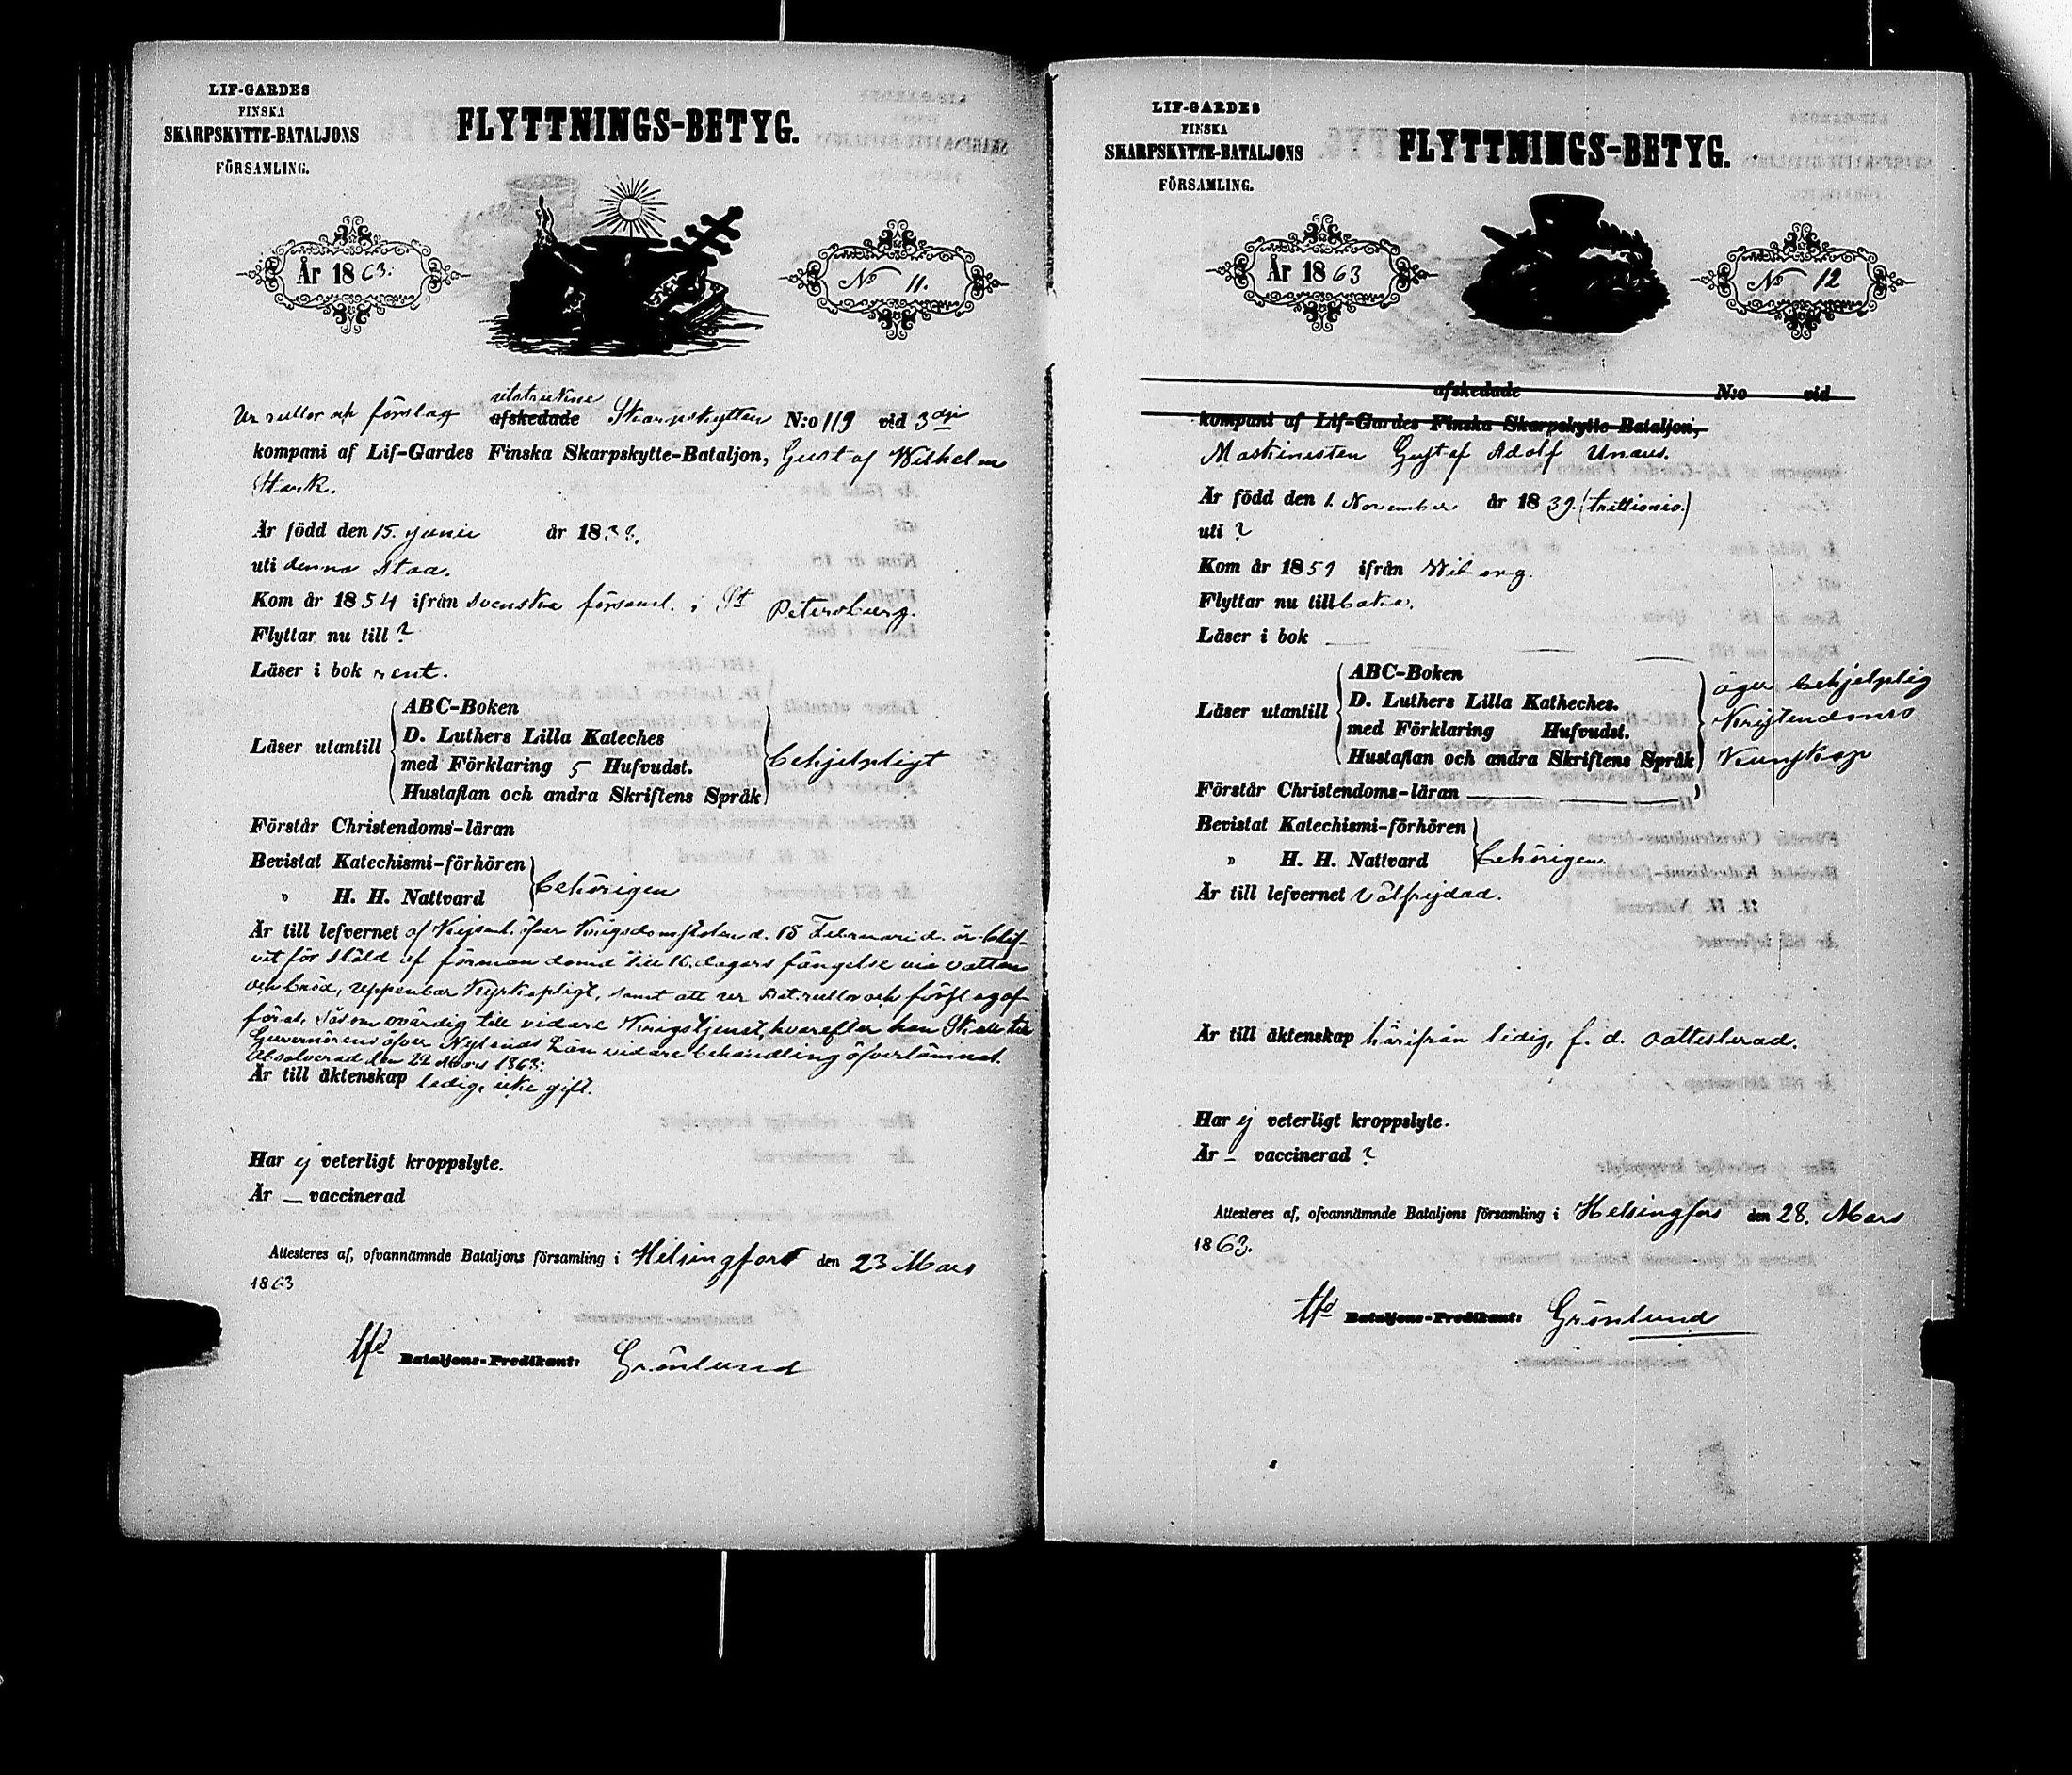 LIF-GARDES
FINSKA
SKARPSKYTTE-BATALJONS
FÖRSAMLING.
FLYTTNINGS-BETYG.
År 1863.
No 11.
utstrukne
Ur rullor och förslag afskedade Skarpskytten N:o 119 vid 3dje
kompani af Lif-Gardes Finska Skarpskytte-Bataljon, Gustaf Wilhelm
Stark.
Är född den 15. junii år 183
uti denna stad.
Kom år 1854 ifrån svenska församl. i St Petersburg.
Flyttar nu till ?
Läser i bok rent.
Läser utantill
ABC-Boken
D. Luthers Lilla Kateches
med Förklaring 5 Hufvudst.
Hustaflan och andra Skriftens Språk
behjelpligt
Förstår Christendoms-läran
Bevistat Katechismi-förhören
" H. H. Nattvard
behörigen
Är till lefvernet af Kejserl. öfver Krigsdomstolen d. 18 Februari d. år blif-
vit för stöld af förman dömd till 16. dagars fängelse vid vatten
och bröd, uppenbar Kyrkopligt, samt att ur Bat. rullor och förslag af-
föras, såsom ovärdig till vidare Krigstjenst, hvarefter han skall till
Guvernörens öfver Nylands Län vidare behandling öfverlämnas.
Absolverad den 22 Mars 1863.
Är till äktenskap ledig, icke gift.
Har ej veterligt kroppslyte.
Är — vaccinerad
Attesteres af, ofvannämnde Bataljons församling i Helsingfors den 23 Mars
1863
Bataljons-Predikant: Grönlund
LIF-GARDES
FINSKA
SKARPSKYTTE-BATALJONS
FÖRSAMLING.
FLYTTNINGS-BETYG.
År 1863
No 12
afskedade N:o vid
kompani af Lif-Gardes Finska Skarpskytte-Bataljon,
Maskinisten Gustaf Adolf Unaeus.
Är född den 1. November år 1839. (trettionio.)
uti ?
Kom år 1859 ifrån Wiborg.
Flyttar nu tillbaka.
Läser i bok
Läser utantill
ABC-Boken
D. Luthers Lilla Katheches.
med Förklaring Hufvudst.
Hustaflan och andra Skriftens Språk
äger behjelplig
Kristendoms
Kunskap
Förstår Christendoms-läran
Bevistat Katechismi-förhören
" H. H. Nattvard
behörigen.
Är till lefvernet välfrejdad.
Är till äktenskap härifrån ledig, f. d. oattesterad.
Har ej veterligt kroppslyte.
Är – vaccinerad ?
Attesteres af, ofvannämnde Bataljons församling i Helsingfors den 28. Mars
1863.
Bataljons-Predikant: Grönlund